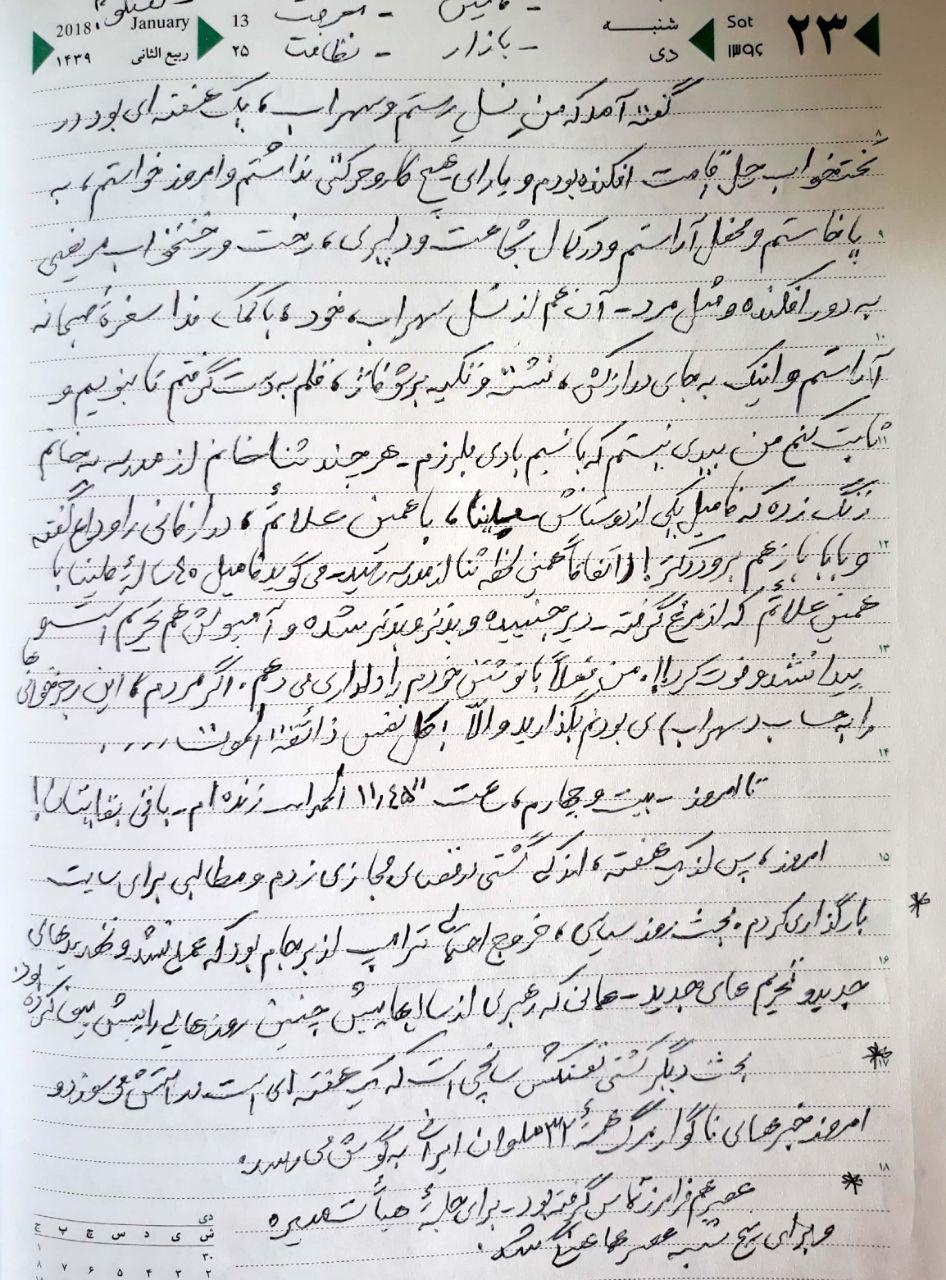 2018، January 13 شنبه Sat ۲۳
۱۴۳۹ ربیع الثانی ۲۵ دی ۱۳۹۶
- بازار - نظافت
گفته آمد که من نسلِ رستم و سهراب، یک هفته‌ای بود در
۸
تختخواب رحل اقامت افکنده بودم و یارای هیچ کار و حرکتی نداشتم و امروز خواستم، به
۹
پا خاستم و محفل آراستم و در کمال شجاعت و دلیری، رخت و رختخواب مریضی
به دور افکنده و مثل مرد - آن هم از نسل سهراب، خود، با کمک خدا سفرهٔ صبحانه
۱۰
آراستم و اینک به جای دراز کش، نشسته و تکیه بر شوفاژ، قلم به دست گرفتم تا بنویسم و
۱۱
ثابت کنم من بیدی نیستم که با نسیم بادی بلرزم - هر چند ثنا خانم از مدرسه به خانم
زنگ زده که فامیل یکی از دوستانش، با همین علائم، دار فانی را وداع گفته
۱۲
و بابا باز هم برود دکتر! (اتفاقاً همین لحظه ثنا از مدرسه رسید - می گوید فامیل ۴۵ سالهٔ با
همین علائم که از مرغ گرفته - دیر جنبیده و بدتر و بدتر شده و آمپولش هم تحریم است و
۱۳
پیدا نشد و فوت کرد!!. من فعلاً با نوشتن خودم را دلداری می دهم. اگر مردم، این رجزخوانی ها
را به حساب سهراب ی بودنم بگذارید والّا ! کل نفس ذائقة الموت.....
۱۴
تا امروز - بیست و چهارم، ساعت "۱۱/۴۵ الحمدلله زنده ام - باقی بقایتان!
۱۵
امروز، پس از یک هفته، اندکی گشتی در فضای مجازی زدم و مطالبی برای سایت
* بارگذاری کردم. بحث روز سیاسی، خروج احتمالی ترامپ از برجام بود که عملی نشد و تهدیدهای
۱۶
جدید و تحریم های جدید - همانی که رهبری از سالها پیش چنین روزهایی را پیش بینی کرده بود.
۱۷
* بحث دیگر کشتی نفتکش سانچی است که یک هفته ای است در آتش می سوزد و
امروز خبرهای ناگوار مرگ همهٔ ۳۲ ملوان ایرانی به گوش می رسد.
۱۸
* عصر هم فرامرز تماس گرفته بود - برای جلسهٔ هیأت مدیره
و برای پنج شنبه عصر هماهنگ شد.
دی
ش ی د س چ پ ج
۳۰ ۱
۲ ۳ ۴ ۵ ۶ ۷ ۸